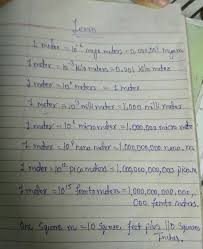 Learn
1 meter = 10⁻⁶ mega meters = 0.000,001 megame
1 meter = 10⁻³ kilo meters = 0.001 kilo meter
1 meter = 10⁰ meters = 1 meter
1 meter = 10³ milli meter = 1,000 milli meter
1 meter = 10⁶ micro meter = 1,000,000 micro metre
1 meter = 10⁹ nano meter = 1,000,000,000 nano m
1 meter = 10¹² pico meters = 1,000,000,000,000 picome
1 meter = 10¹⁵ femto meters = 1,000,000,000,000,
000 femto meters
One Square m = 10 Square feet plus 110 Square
Inches